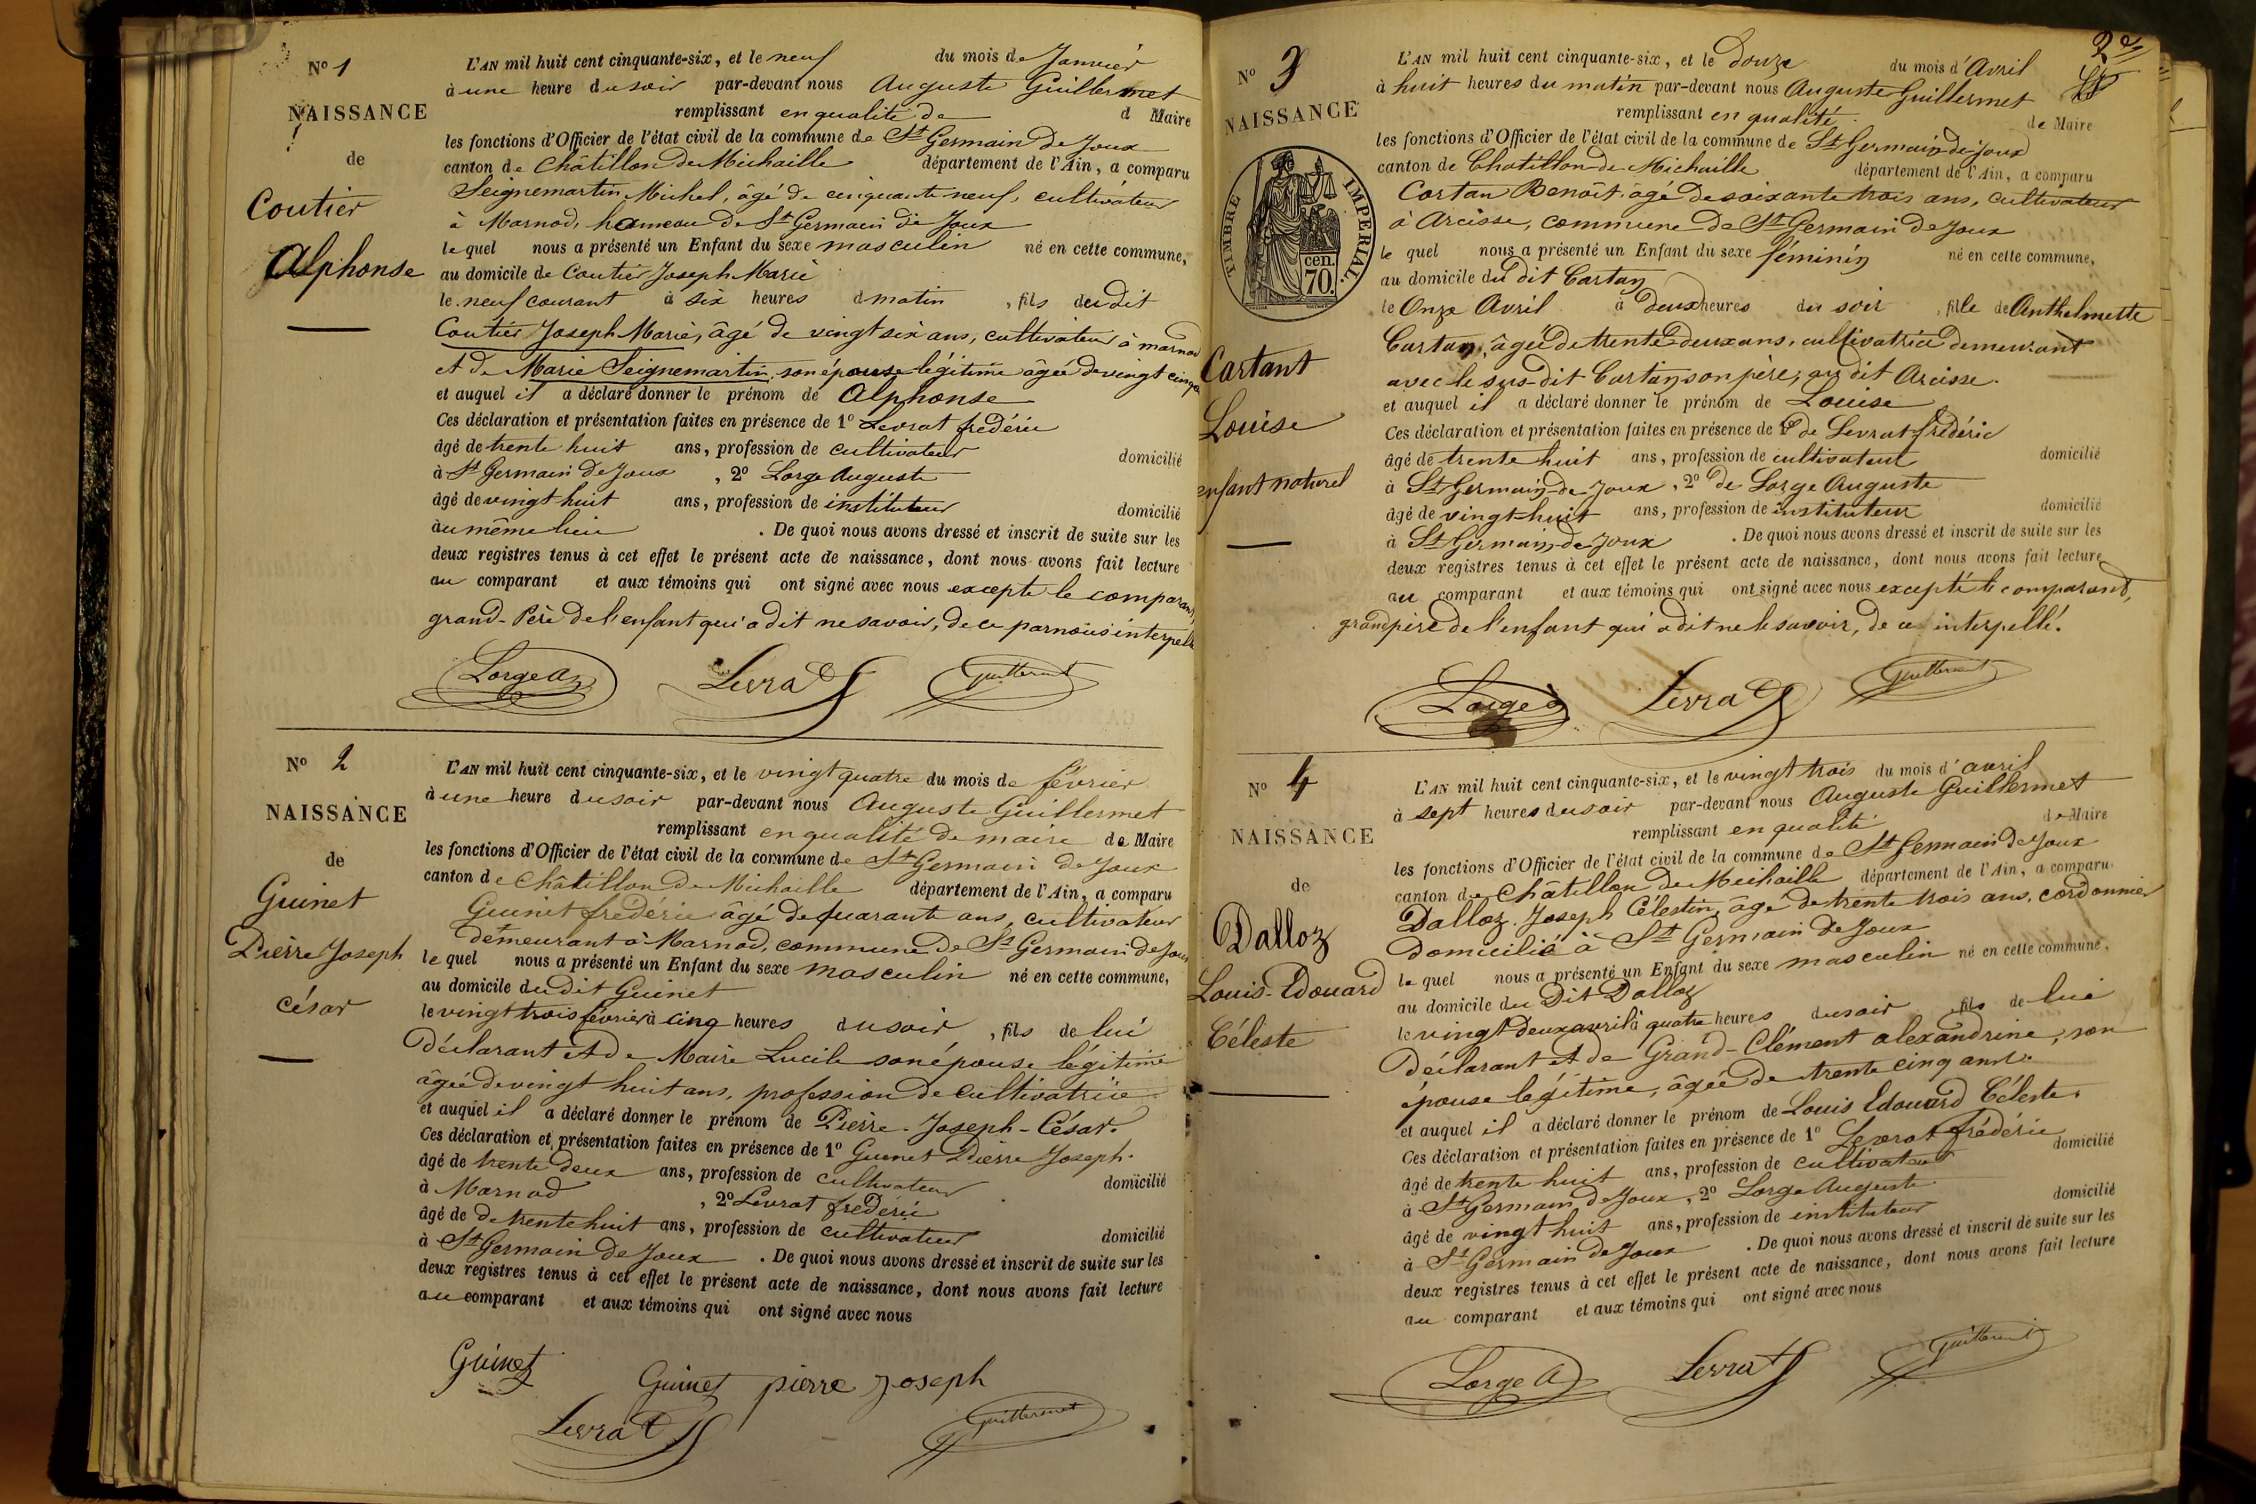 N° 1
NAISSANCE
de
Coutier
Alphonse
L'AN mil huit cent cinquante-six, et le neuf du mois de Janvier
à une heure du soir par-devant nous Auguste Guillermet
remplissant en qualité de d Maire
les fonctions d'Officier de l'état civil de la commune de St Germain de Joux
canton de Châtillon de Michaille département de l'Ain, a comparu
Seignemartin Michel, âgé de cinquante neuf, cultivateur
à Marnod, hameau de St Germain de Joux
le quel nous a présenté un Enfant du sexe masculin né en cette commune,
au domicile de Coutier Joseph Marie
le neuf courant à six heures d matin, fils du dit
Coutier Joseph Marie, âgé de vingt six ans, cultivateur à marnod
et de Marie Seignemartin, son épouse légitime âgée de vingt cinq
et auquel il a déclaré donner le prénom de Alphonse
Ces déclaration et présentation faites en présence de 1° Levrat frédéric
âgé de trente huit ans, profession de cultivateur domicilié
à St Germain de Joux, 2° Lorge Auguste
âgé de vingt huit ans, profession de instituteur domicilié
au même lieu. De quoi nous avons dressé et inscrit de suite sur les
deux registres tenus à cet effet le présent acte de naissance, dont nous avons fait lecture
au comparant et aux témoins qui ont signé avec nous excepte le comparant,
grand-Père de l'enfant qui a dit ne savoir, de ce par nous interpellé
Lorge A
Levrat
Guillermet
N° 2
NAISSANCE
de
Guinet
Pierre Joseph
César
L'AN mil huit cent cinquante-six, et le vingt quatre du mois de février
à une heure du soir par-devant nous Auguste Guillermet
remplissant en qualité de maire de Maire
les fonctions d'Officier de l'état civil de la commune de St Germain de Joux
canton de Châtillon de Michaille département de l'Ain, a comparu
Guinet frédéric âgé de quarante ans, cultivateur
demeurant à Marnod, commune de St Germain de Joux
le quel nous a présenté un Enfant du sexe masculin né en cette commune,
au domicile du dit Guinet
le vingt trois février à cinq heures du soir, fils de lui
Déclarant et de Maire Lucile son épouse légitime
âgée de vingt huit ans, profession de cultivatrice
et auquel il a déclaré donner le prénom de Pierre-Joseph-César.
Ces déclaration et présentation faites en présence de 1° Guinet Pierre Joseph.
âgé de trente deux ans, profession de cultivateur domicilié
à Marnod, 2° Levrat frédéric
âgé de de trente huit ans, profession de cultivateur domicilié
à St Germain de Joux. De quoi nous avons dressé et inscrit de suite sur les
deux registres tenus à cet effet le présent acte de naissance, dont nous avons fait lecture
au comparant et aux témoins qui ont signé avec nous
Guinet
Guinet pierre joseph
Levrat
Guillermet
2e
N° 3
NAISSANCE
TIMBRE IMPERIAL
cen.
70.
Cartant
Louise
enfant naturel
L'AN mil huit cent cinquante-six, et le douze du mois d'Avril
à huit heures du matin par-devant nous Auguste Guillermet
remplissant en qualité de Maire
les fonctions d'Officier de l'état civil de la commune de St Germain de Joux
canton de Chatillon de Michaille département de l'Ain, a comparu
Cartan Benoît âgé de soixante trois ans, cultivateur
à Arcisse, commune de St Germain de Joux
le quel nous a présenté un Enfant du sexe féminin né en cette commune,
au domicile du dit Cartan
le Onze Avril à deux heures du soir, fille de Anthelmette
Cartan, âgée de trente deux ans, cultivatrice demeurant
avec le sus-dit Cartan son père, au dit Arcisse.
et auquel il a déclaré donner le prénom de Louise
Ces déclaration et présentation faites en présence de 1° de Levrat frédéric
âgé de trente huit ans, profession de cultivateur domicilié
à St Germain de Joux, 2° de Lorge Auguste
âgé de vingt huit ans, profession de instituteur domicilié
à St Germain de Joux. De quoi nous avons dressé et inscrit de suite sur les
deux registres tenus à cet effet le présent acte de naissance, dont nous avons fait lecture
au comparant et aux témoins qui ont signé avec nous excepté le comparant,
grand père de l'enfant qui a dit ne le savoir, de ce interpellé.
Lorge A
Levrat
Guillermet
N° 4
NAISSANCE
de
Dalloz
Louis-Edouard
Céleste
L'AN mil huit cent cinquante-six, et le vingt trois du mois d'avril
à sept heures du soir par-devant nous Auguste Guillermet
remplissant en qualité de Maire
les fonctions d'Officier de l'état civil de la commune de St Germain de Joux
canton de Châtillon de Michaille département de l'Ain, a comparu
Dalloz Joseph Célestin, âgé de trente trois ans, cordonnier
domicilié à St Germain de Joux
le quel nous a présenté un Enfant du sexe masculin né en cette commune,
au domicile du Dit Dalloz
le vingt deux avril à quatre heures du soir, fils de lui
Déclarant et de Grand-Clément alexandrine, son
épouse légitime, âgée de trente cinq ans.
et auquel il a déclaré donner le prénom de Louis Edouard Céleste.
Ces déclaration et présentation faites en présence de 1° Levrat frédéric
âgé de trente huit ans, profession de cultivateur domicilié
à St Germain de Joux, 2° Lorge Auguste
âgé de vingt huit ans, profession de instituteur domicilié
à St Germain de Joux. De quoi nous avons dressé et inscrit de suite sur les
deux registres tenus à cet effet le présent acte de naissance, dont nous avons fait lecture
au comparant et aux témoins qui ont signé avec nous
Lorge A
Levrat
Guillermet